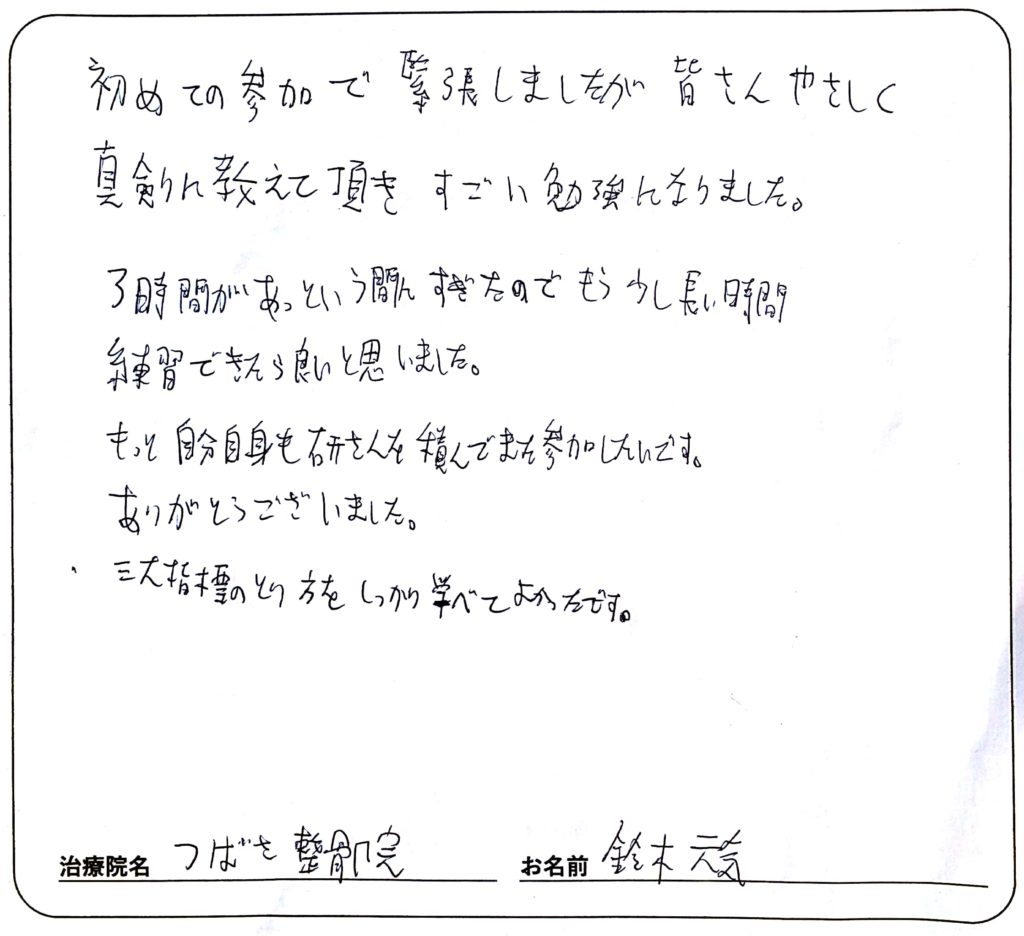 初めての参加で 緊張しましたが 皆さん やさしく
真剣に教えて頂き すごい勉強になりました。
3時間があっという間に すぎたので もう少し長い時間
練習できたら良いと思いました。
もっと自分自身も研さんを積んでまた参加したいです。
ありがとうございました。
・三大指標のとり方を しっかり学べてよかったです。
治療院名 つばさ整骨院
お名前 鈴木 元気